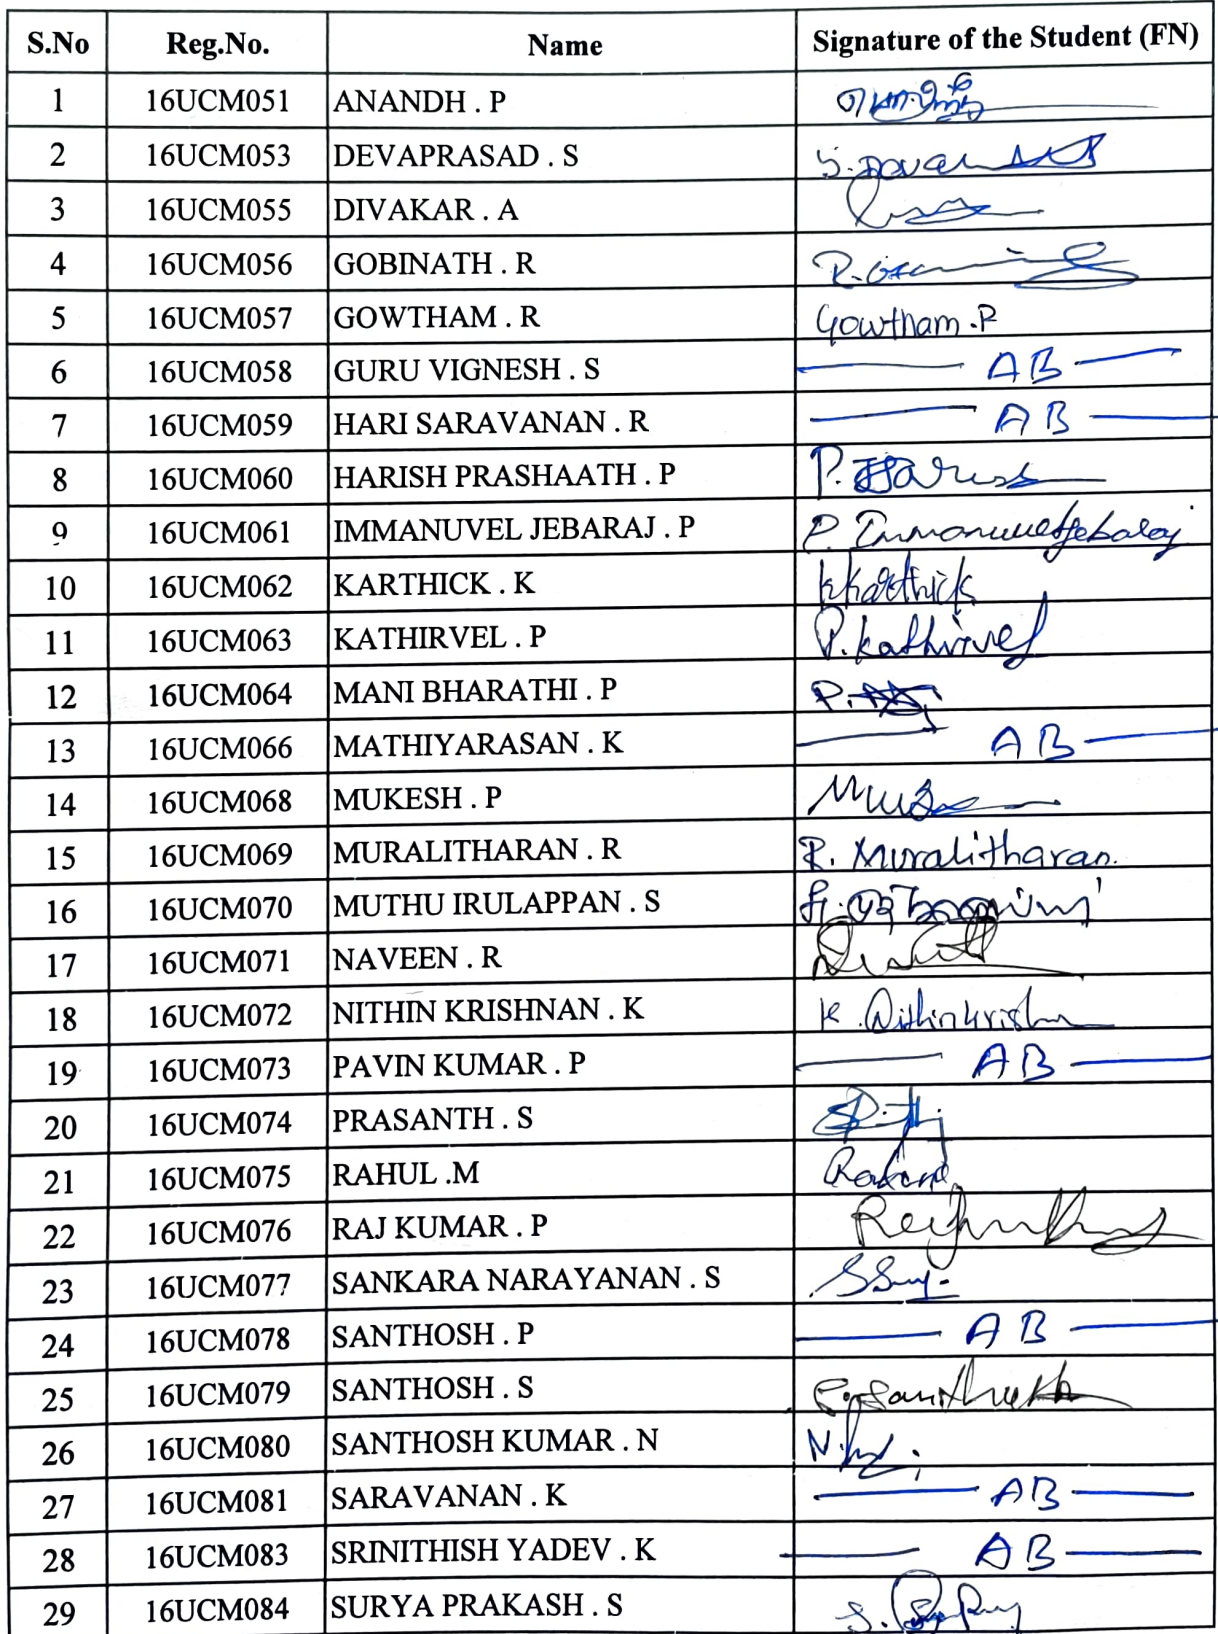 S.No Reg.No. Name Signature of the Student (FN)
1 16UCM051 ANANDH . P
2 16UCM053 DEVAPRASAD . S
3 16UCM055 DIVAKAR . A
4 16UCM056 GOBINATH . R
5 16UCM057 GOWTHAM . R Gowtham . R
6 16UCM058 GURU VIGNESH . S AB
7 16UCM059 HARI SARAVANAN . R AB
8 16UCM060 HARISH PRASHAATH . P P. Harish
9 16UCM061 IMMANUVEL JEBARAJ . P P. Immanuveljebaraj
10 16UCM062 KARTHICK . K KKarthick
11 16UCM063 KATHIRVEL . P P. Kathirvel
12 16UCM064 MANI BHARATHI . P
13 16UCM066 MATHIYARASAN . K AB
14 16UCM068 MUKESH . P
15 16UCM069 MURALITHARAN . R R. Muralitharan.
16 16UCM070 MUTHU IRULAPPAN . S
17 16UCM071 NAVEEN . R
18 16UCM072 NITHIN KRISHNAN . K K. Nithinkrishn
19 16UCM073 PAVIN KUMAR . P AB
20 16UCM074 PRASANTH . S
21 16UCM075 RAHUL .M
22 16UCM076 RAJ KUMAR . P
23 16UCM077 SANKARA NARAYANAN . S
24 16UCM078 SANTHOSH . P AB
25 16UCM079 SANTHOSH . S
26 16UCM080 SANTHOSH KUMAR . N
27 16UCM081 SARAVANAN . K AB
28 16UCM083 SRINITHISH YADEV . K AB
29 16UCM084 SURYA PRAKASH . S